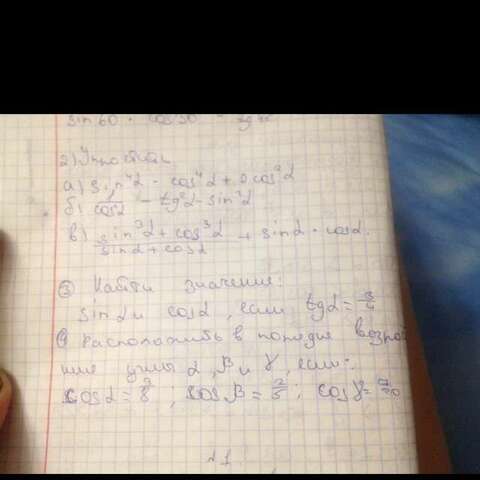 sin 60 · cos 30 - tg
2) Упростить
а) sin⁴α - cos⁴α + 2cos²α
б) - tg²α - sin²α
в) sin³α + cos³α / sinα + cosα + sinα · cosα.
③ Найти значение:
sinα и cosα, если tgα = 3/4
④ Расположить в порядке возрас
углы α, β и γ, если:
cosα = 7/8 ; cosβ = 2/5 ; cosγ =
№ 1